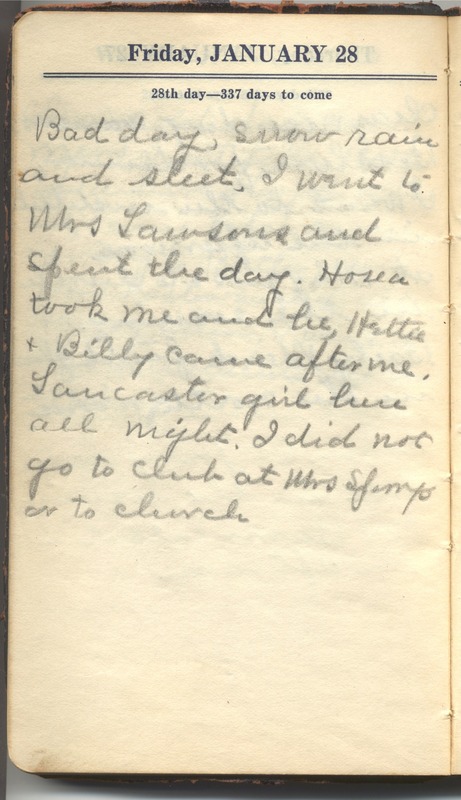 Friday, JANUARY 28
28th day—337 days to come
Bad day, snow rain
and sleet, I went to
Mrs Lawsons and
spent the day. Hosea
took me and he, Hettie
+ Billy came after me.
Lancaster girl here
all night. I did not
go to club at Mrs
or to church